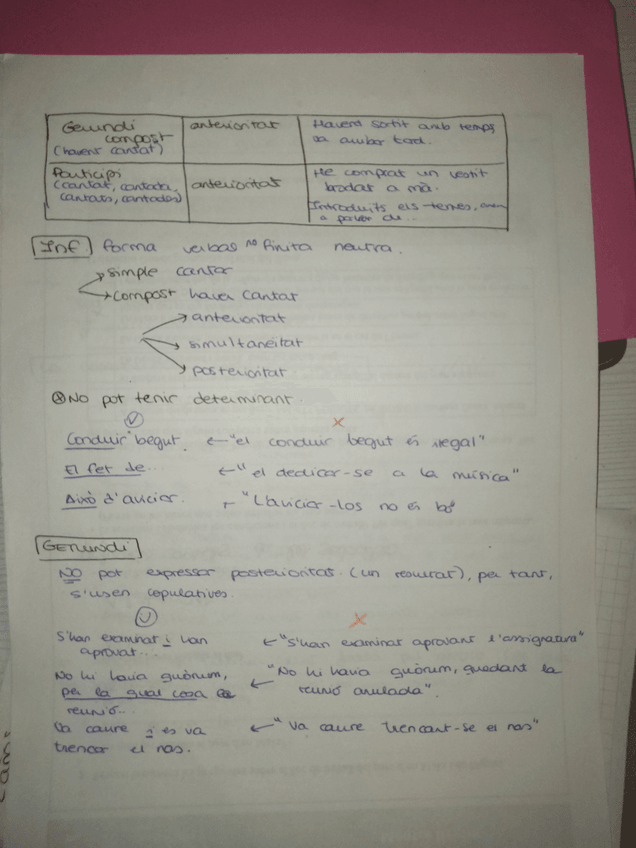 Gerundi compost
(havent cantat)
anterioritat
Havent sortit amb temps
va arribar tard.
Participi
(cantat, cantada,
cantats, cantades)
anterioritat
He comprat un vestit
brodat a mà.
Introduïts els temes,
a parlar de...
Inf forma verbal no finita neutra.
simple cantar
compost haver cantat
anterioritat
simultaneïtat
posterioritat
No pot tenir determinant.
Conduir begut. ← "el conduir begut és ilegal"
El fet de... ← "el dedicar-se a la música"
Això d'aviciar. ← "L'aviciar-los no és bo"
GERUNDI
NO pot expressar posterioritat. (un resultat), per tant,
s'usen copulatives.
S'han examinat i han
aprovat... ← "S'han examinat aprovant l'assignatura"
No hi havia quòrum,
per la qual cosa la
reunió...
← "No hi havia quòrum, quedant la
reunió anulada".
Va caure i es va
trencar el nas.
← "Va caure trencant-se el nas"